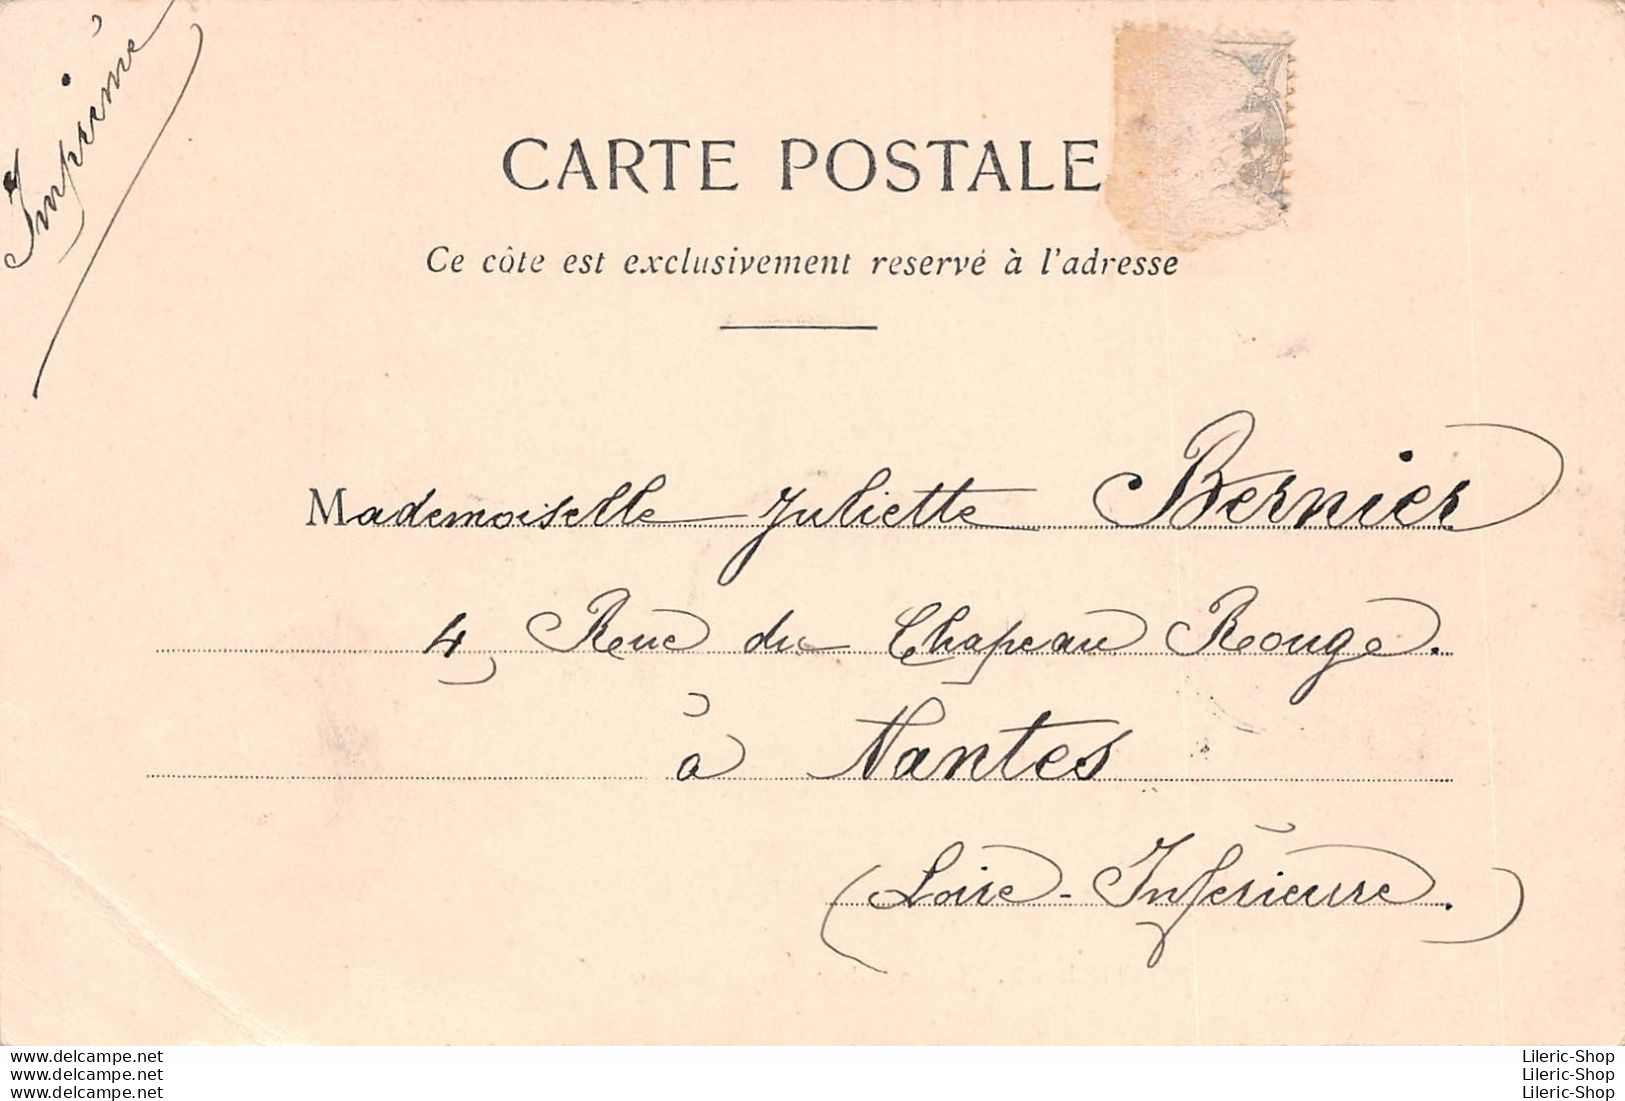 Imprimé
CARTE POSTALE
Ce côte est exclusivement reservé à l'adresse
Mademoiselle Juliette Bernier
4, Rue du Chapeau Rouge.
à Nantes
(Loire-Inférieure.)
www.delcampe.net
www.delcampe.net
www.delcampe.net
Lileric-Shop
Lileric-Shop
Lileric-Shop